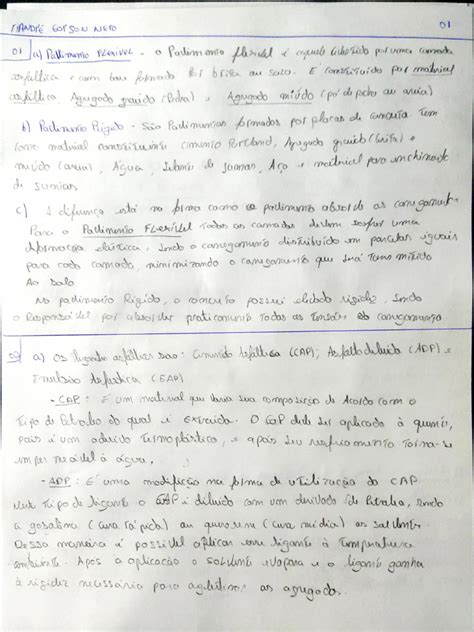 01
01 a) Pavimento FLEXÍVEL - o Pavimento flexível é aquele coberto por uma camada
asfáltica e com base formada por brita ou solo. É constituido por material
asfáltico, Agregado graúdo (Pedra) e Agregado miúdo (pó de pedra ou areia)
b) Pavimento Rígido - São Pavimentos formados por placas de concreto. Tem
como material constituinte cimento Portland, Agregado graúdo (brita) e
miúdo (areia), Água, Selante de Juntas, Aço e material para enchimento
de juntas.
c) A diferença está na forma como o pavimento absorve os carregamentos
Para o Pavimento FLEXÍVEL todas as camadas devem sofrer uma
deformação elástica, sendo o carregamento distribuido em parcelas iguais
para cada camada, minimizando o carregamento que será transmitido
Ao solo
No pavimento Rígido, o concreto possui elevada rigidez, sendo
o Responsável por absorver praticamente todas as tensões do carregamento
02 a) Os ligantes asfálticos são: Cimento Asfáltico (CAP); Asfalto diluído (ADP) e
Emulsão Asfáltica (EAP)
- CAP: É um material que varia sua composição de Acordo com o
Tipo de Petróleo do qual é extraido. O CAP deve ser aplicado à quente,
pois é um aditivo Termoplástico, e após seu resfriamento torna-se
impermeável à água.
- ADP: É uma modificação na forma de utilização do CAP
Neste Tipo de ligante o CAP é diluído com um derivado do Petróleo, sendo
a gasolina (cura rápida) ou querosene (cura média) as solventes.
Dessa maneira é possivel aplicar esse ligante à Temperatura
ambiente. Após a aplicação o solvente evapora e o ligante ganha
à rigidez necessária para aglutinar os agregados.